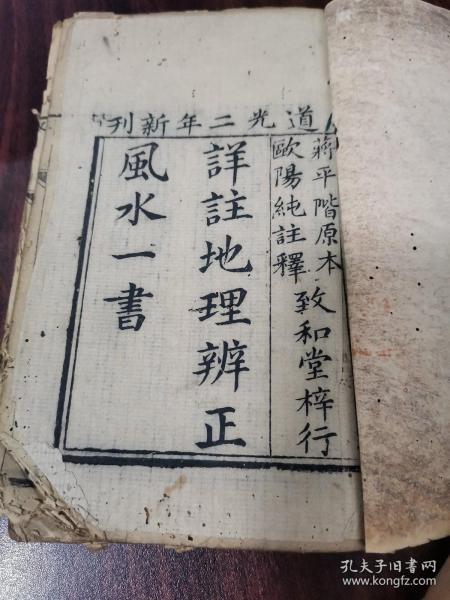 道光二年新刊
蔣平階原本
歐陽純註釋
致和堂梓行
詳註地理辨正
風水一書
孔夫子旧书网
www.kongfz.com